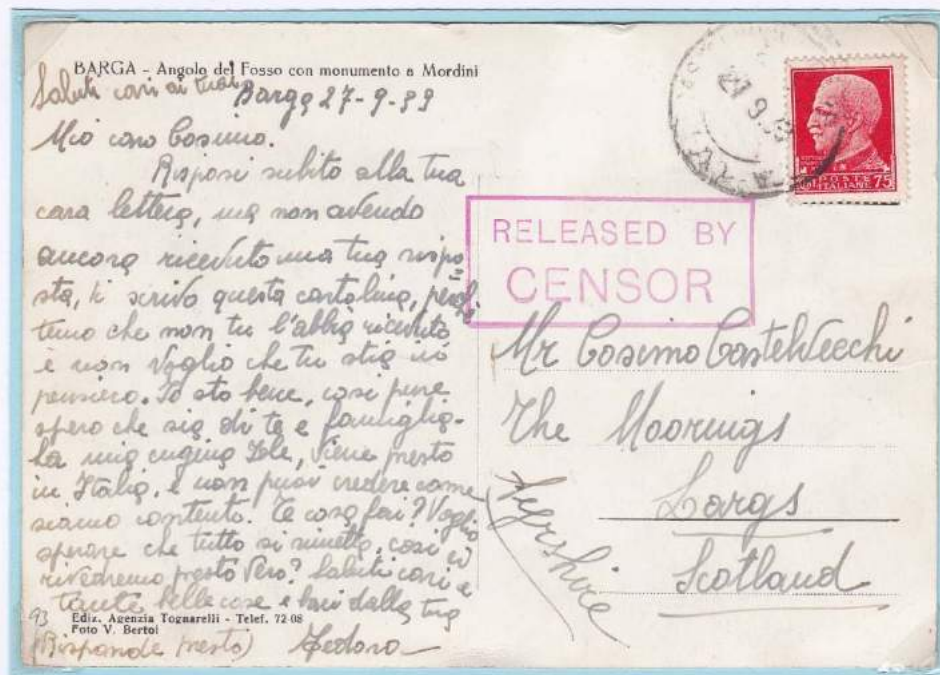 BARGA - Angolo del Fosso con monumento a Mordini
Saluti cari ai tuoi
Barga 27-9-39
Mio caro Cosimo.
Risposi subito alla tua
cara lettera, ma non avendo
ancora ricevuto una tua rispo
sta, ti scrivo questa cartolina, perchè
temo che non tu l'abbia ricevuta
e non voglio che tu stia in
pensiero. Io sto bene, così pure
spero che sia di te e famiglia.
La mia cugina Iole, viene presto
in Italia, e non puoi credere come
siamo contente. Te cosa fai? Voglio
sperare che tutto si rimetta, così ci
rivedremo presto vero? Saluti cari e
tante belle cose e baci dalla tua
93 Ediz. Agenzia Tognarelli - Telef. 72-08
Foto V. Bertoi
(Risponde presto) Fedora
POSTE
ITALIANE 75
RELEASED BY
CENSOR
Mr Cosimo Castelvecchi
The Moorings
Largs
Ayrshire
Scotland